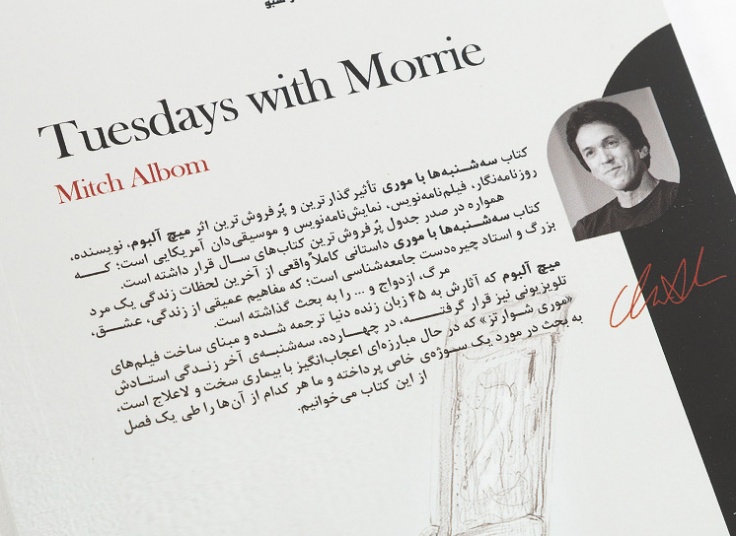 Tuesdays with Morrie
Mitch Albom
کتاب سه‌شنبه‌ها با موری تأثیرگذارترین و پُرفروش‌ترین اثر میچ آلبوم، نویسنده،
روزنامه‌نگار، فیلم‌نامه‌نویس، نمایش‌نامه‌نویس و موسیقی‌دان آمریکایی است؛ که
همواره در صدر جدول پُرفروش‌ترین کتاب‌های سال قرار داشته است.
کتاب سه‌شنبه‌ها با موری داستانی کاملاً واقعی از آخرین لحظات زندگی یک مرد
بزرگ و استاد چیره‌دست جامعه‌شناسی است؛ که مفاهیم عمیقی از زندگی، عشق،
مرگ، ازدواج و ... را به بحث گذاشته است.
میچ آلبوم که آثارش به ۴۵ زبان زنده دنیا ترجمه شده و مبنای ساخت فیلم‌های
تلویزیونی نیز قرار گرفته، در چهارده، سه‌شنبه‌ی آخر زندگی استادش
«موری شوارتز» که در حال مبارزه‌ای اعجاب‌انگیز با بیماری سخت و لاعلاج است،
به بحث در مورد یک سوژه‌ی خاص پرداخته و ما هر کدام از آن‌ها را طی یک فصل
از این کتاب می‌خوانیم.